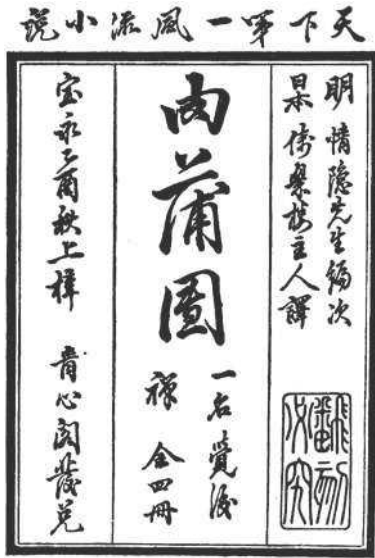 天下第一風流小說
明 情隐先生編次
日本 倚翠楼主人譯
飜刻必究
肉蒲團
一名覺後
禅 全四冊
宝永乙酉秋上梓 青心閣發兌